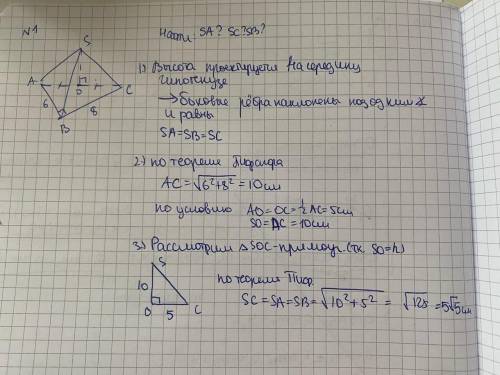 N1
Найти: SA? SC? SB?
S
A
O
C
6
8
B
1) Высота проектируется на середину
гипотенузе
→ боковые рёбра наклонены под одним ∡
и равны
SA=SB=SC
2) по теореме Пифагора
AC = √6²+8² = 10 см
по условию AO = OC = ½ AC = 5 см
SO = AC = 10 см
3) Рассмотрим △ SOC - прямоуг. (тк SO=h)
S
10
O 5 C
по теореме Пиф.
SC = SA = SB = √10²+5² = √125 = 5√5 см